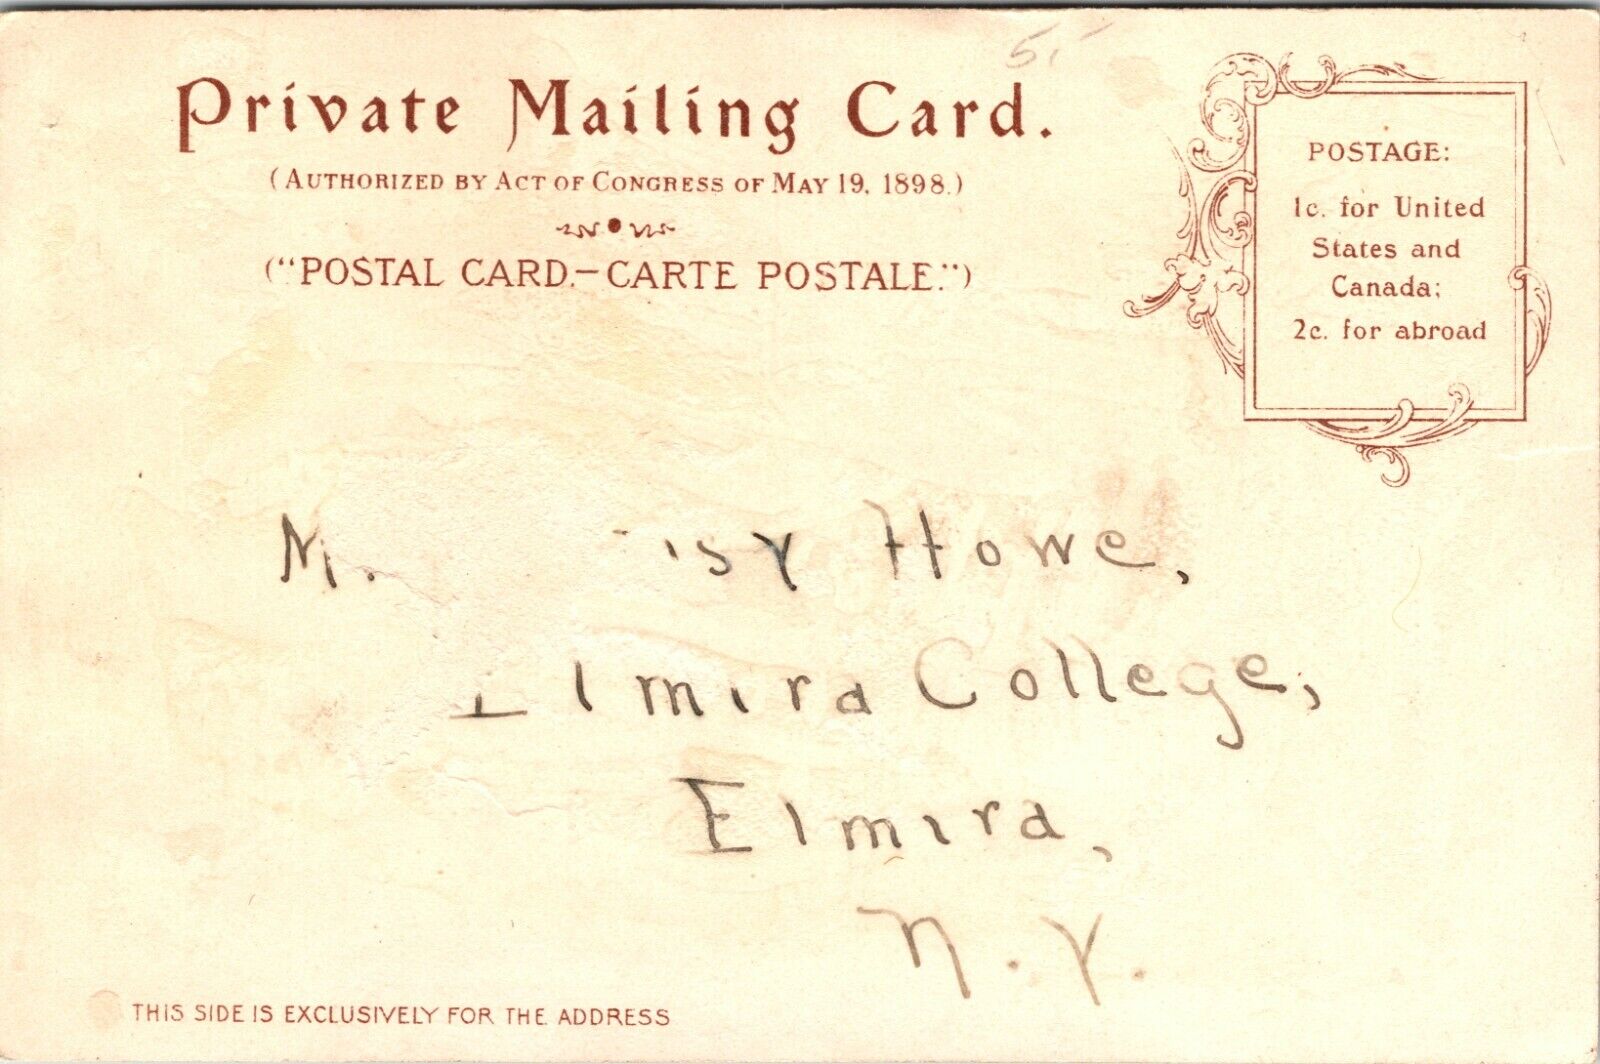 5.-
Private Mailing Card.
(AUTHORIZED BY ACT OF CONGRESS OF MAY 19, 1898.)
("POSTAL CARD.—CARTE POSTALE.")
POSTAGE:
1c. for United
States and
Canada;
2c. for abroad
Howe,
Elmira College,
Elmira,
N.Y.
THIS SIDE IS EXCLUSIVELY FOR THE ADDRESS